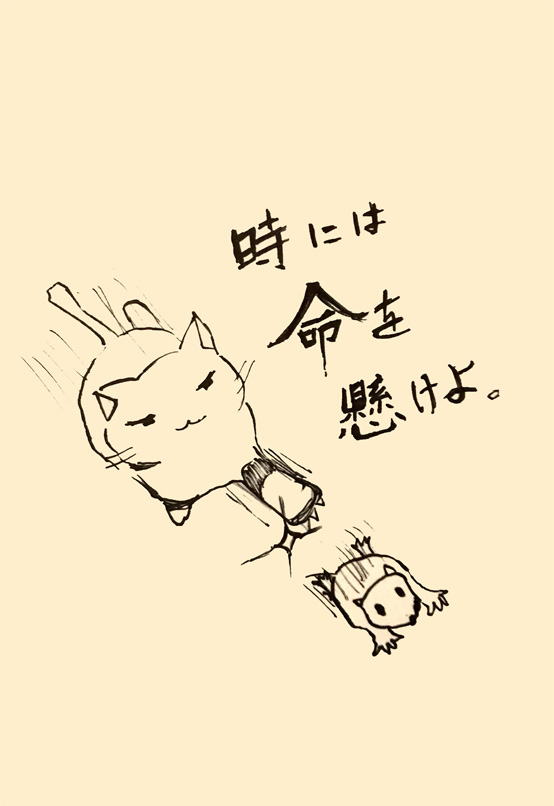 時には
命を
懸けよ。